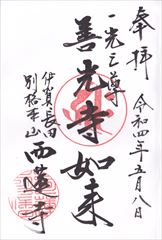 奉拝
令和四年五月八日
一光三尊
善光寺如来
伊賀長田
別格本山
西蓮寺